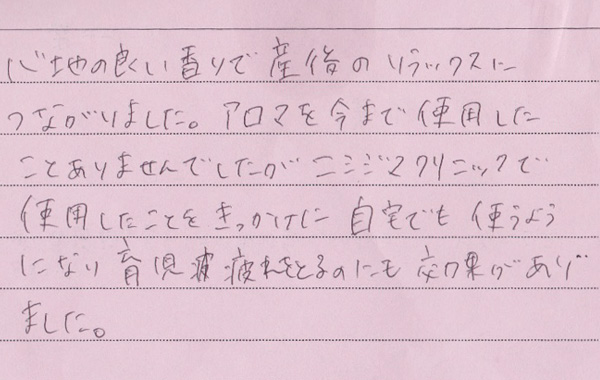 心地の良い香りで産後のリラックスに
つながりました。アロマを今まで使用した
ことありませんでしたが ニシジマクリニックで
使用したことをきっかけに 自宅でも 使うよう
になり 育児疲れをとるのにも 効果があり
ました。